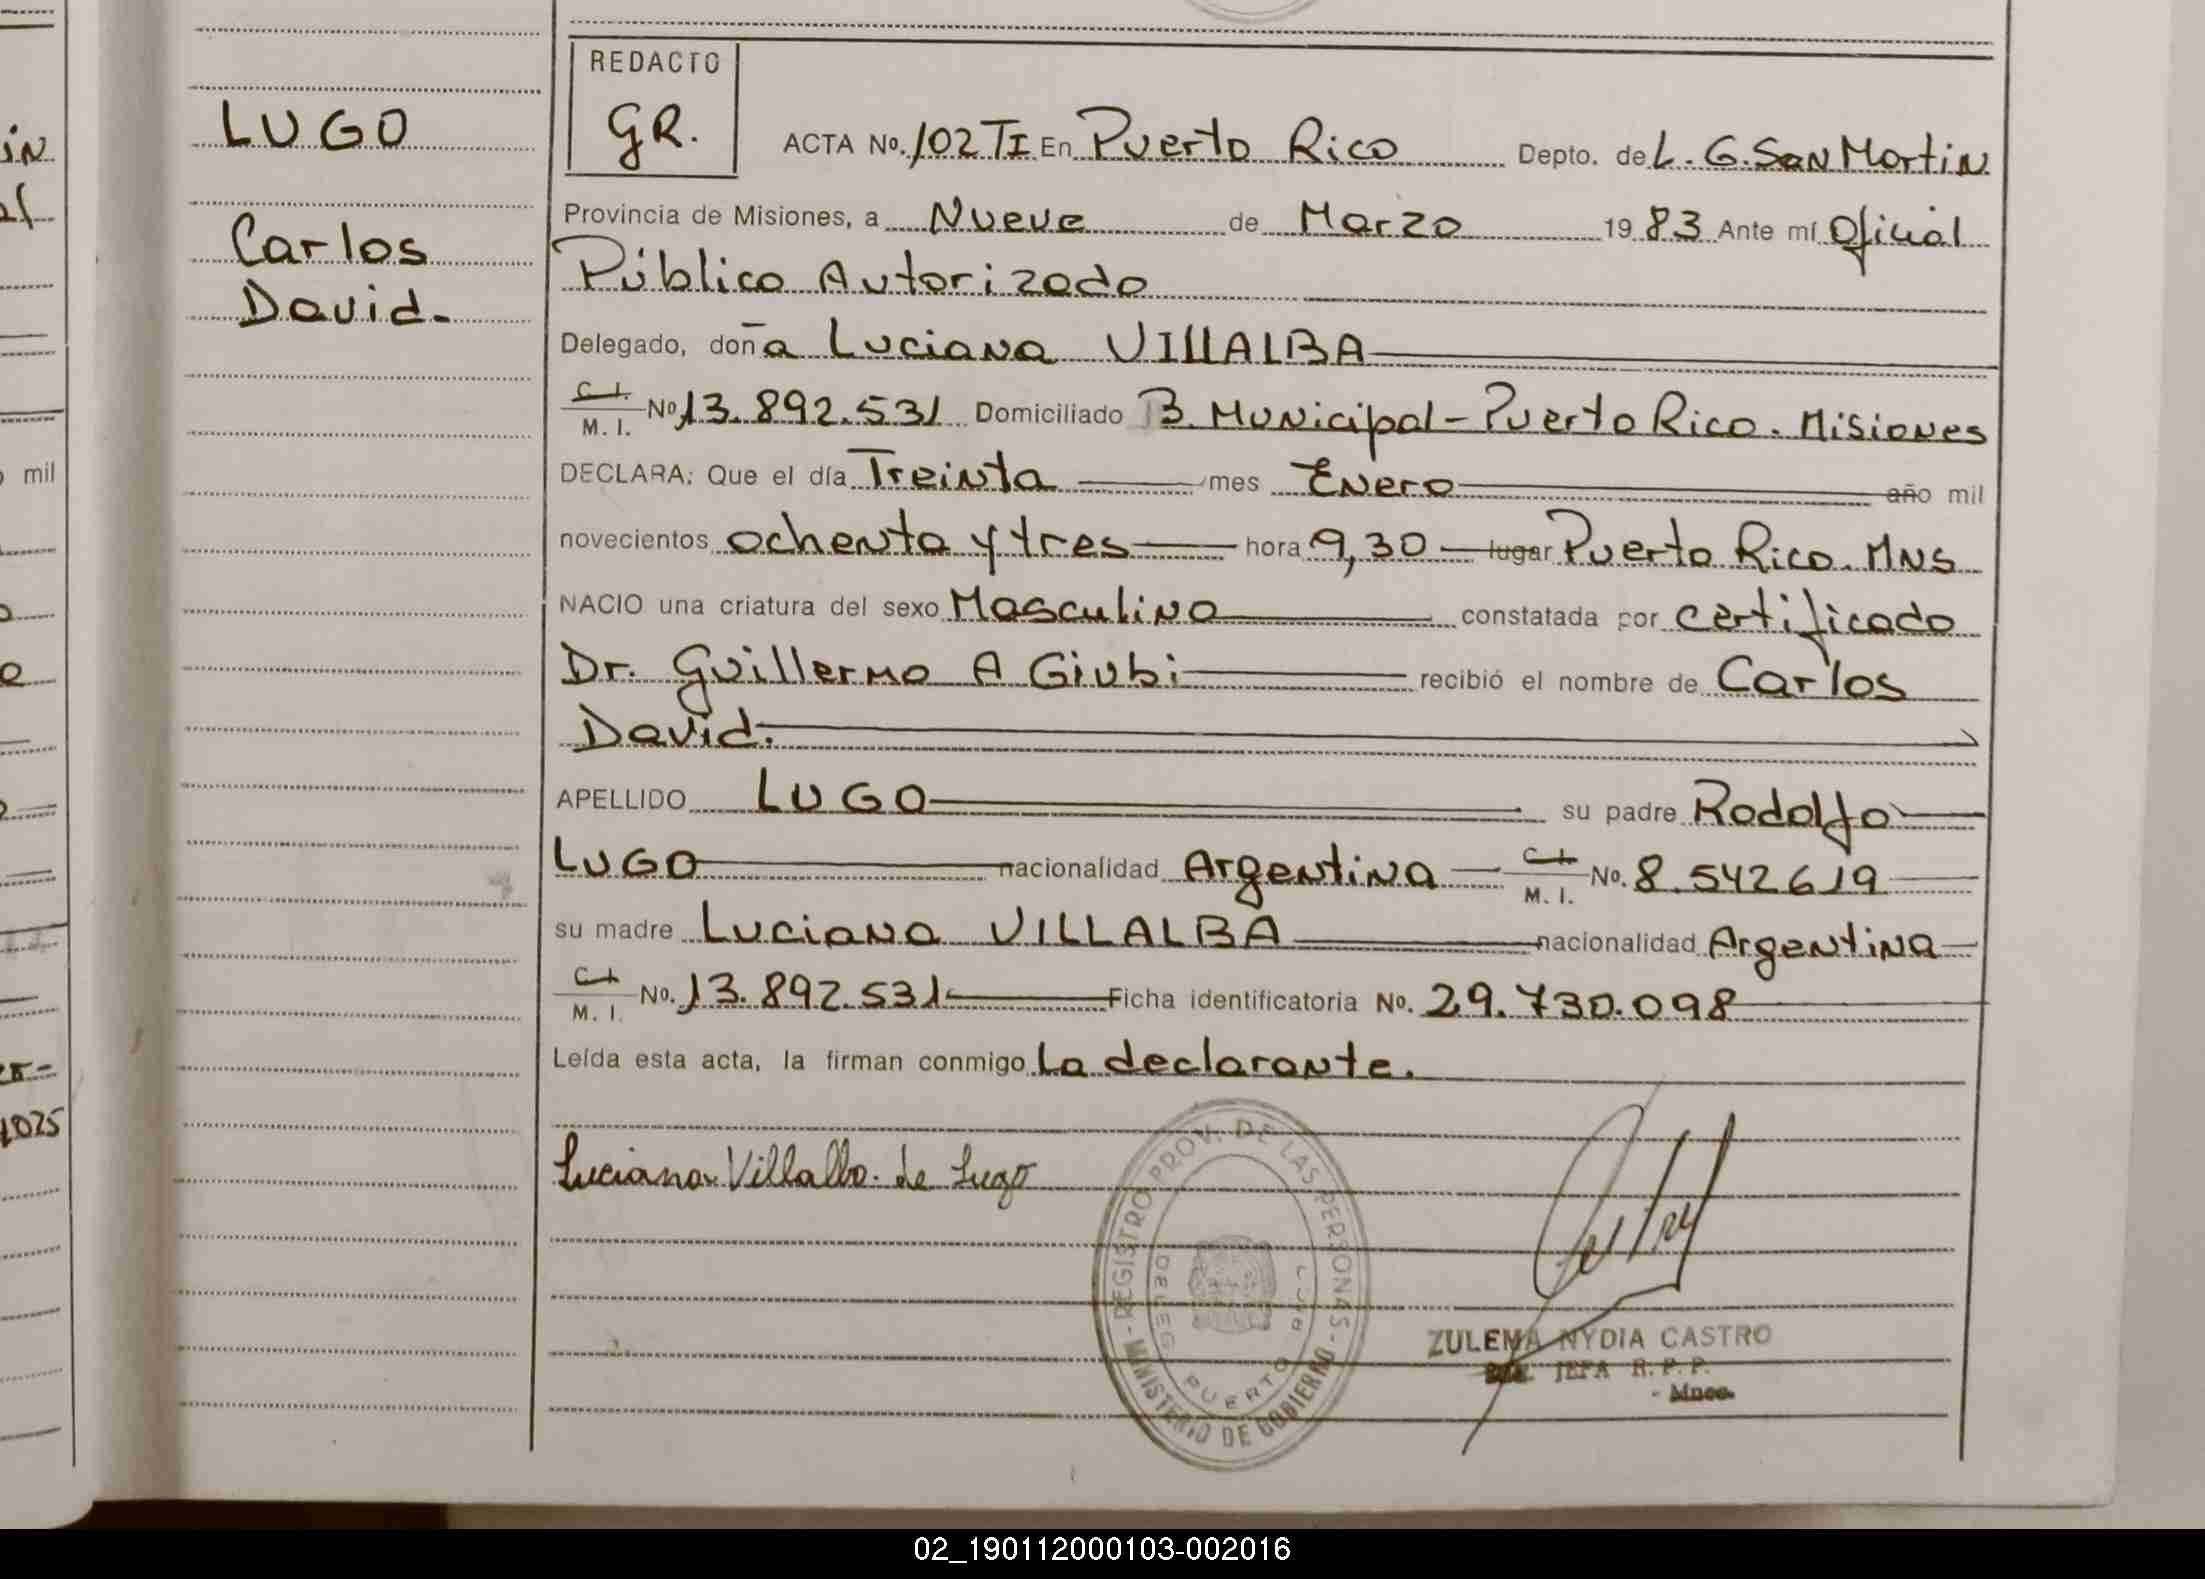 REDACTO
GR.
LUGO
Carlos
David.
ACTA No. 102 TI En Puerto Rico Depto. de L. G. San Martin
Provincia de Misiones, a Nueve de Marzo 1983 Ante mí Oficial
Público Autorizado
Delegado, doña Luciana VILLALBA
C.I. M. I. No 13.892.531 Domiciliado B. Municipal - Puerto Rico. Misiones
DECLARA: Que el día Treinta mes Enero año mil
novecientos ochenta y tres hora 9,30 lugar Puerto Rico. MNS
NACIO una criatura del sexo Masculino constatada por certificado
Dr. Guillermo A Giubi recibió el nombre de Carlos
David.
APELLIDO LUGO su padre Rodolfo
LUGO nacionalidad Argentina C.I. M. I. No. 8.542619
su madre Luciana VILLALBA nacionalidad Argentina
C.I. M. I. No. 13.892.531 Ficha identificatoria No. 29.730.098
Leída esta acta, la firman conmigo La declarante.
Luciana Villalba de Lugo
- REGISTRO PROV. DE LAS PERSONAS -
MINISTERIO DE GOBIERNO
DELEG PUERTO
ZULEMA NYDIA CASTRO
JEFA R. P. P.
- Mnes.
mil
1025
02_190112000103-002016